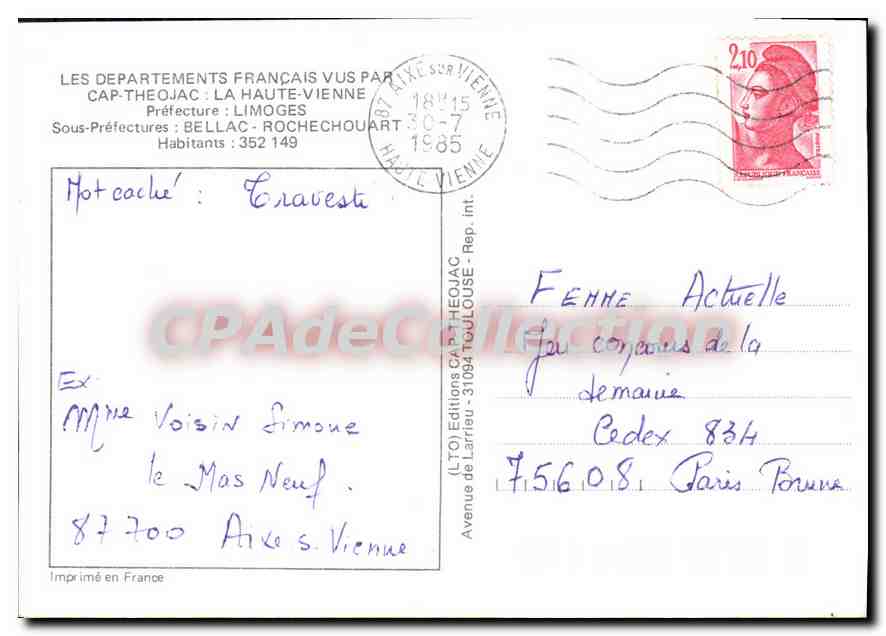 LES DEPARTEMENTS FRANÇAIS VUS PAR
CAP-THEOJAC : LA HAUTE-VIENNE
Préfecture : LIMOGES
Sous-Préfectures : BELLAC - ROCHECHOUART
Habitants : 352 149
87 AIXE SUR VIENNE
18H15
30-7
1985
HAUTE VIENNE
2,10
POSTES
REPUBLIQUE FRANÇAISE
Mot caché : Travesti
Ex
Mme Voisin Simone
le Mas Neuf.
87700 Aixe s. Vienne
(LTO) Editions CAP-THEOJAC
Avenue de Larrieu - 31094 TOULOUSE - Rep. int.
FEMME Actuelle
Jeu concours de la
semaine
Cedex 834
75608 Paris Brune
CPAdeCollection
Imprimé en France